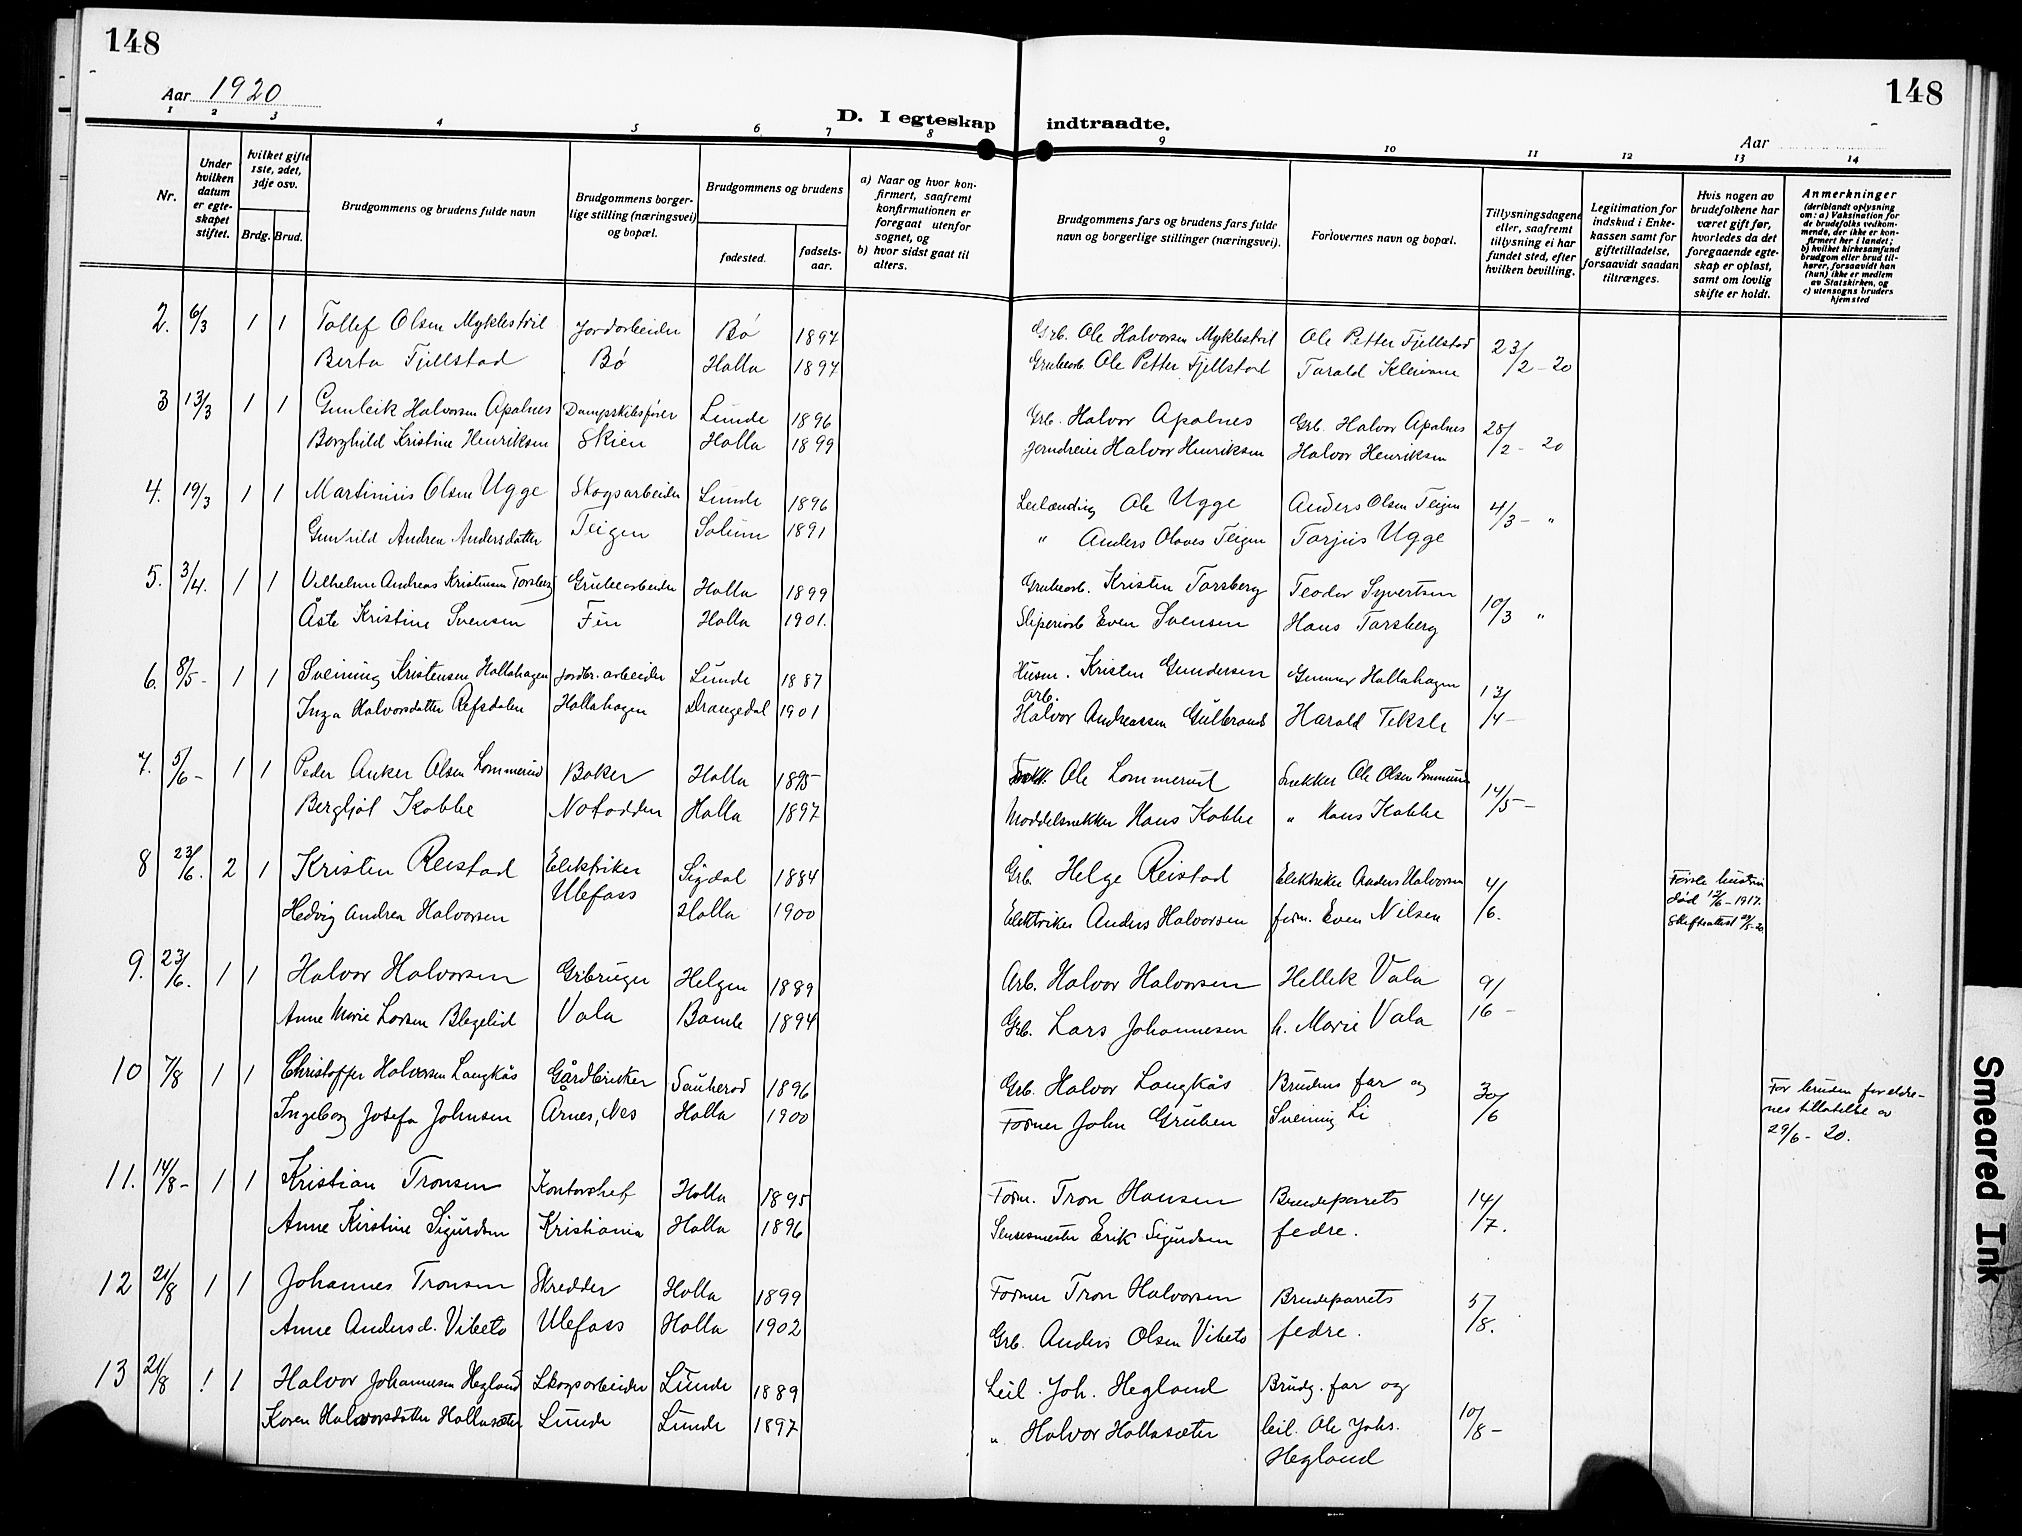 148
148
Aar 1920
D. I egteskap indtraadte.
Aar
1 2 3 4 5 6 7 8 9 10 11 12 13 14
Nr.
Under hvilken datum er egteskapet stiftet.
hvilket gifte 1ste, 2det, 3dje osv.
Brdg. Brud.
Brudgommens og brudens fulde navn
Brudgommens borgerlige stilling (næringsvei) og bopæl.
Brudgommens og brudens
fødested.
fødselsaar.
a) Naar og hvor konfirmert, saafremt konfirmationen er foregaat utenfor sognet, og
b) hvor sidst gaat til alters.
Brudgommens fars og brudens fars fulde navn og borgerlige stillinger (næringsvei).
Forlovernes navn og bopæl.
Tillysningsdagene eller, saafremt tillysning ei har fundet sted, efter hvilken bevilling.
Legitimation for indskud i Enkekassen samt for giftetilladelse, forsaavidt saadan tiltrænges.
Hvis nogen av brudefolkene har været gift før, hvorledes da det foregaaende egteskap er opløst, samt om lovlig skifte er holdt.
Anmerkninger
(deriblandt oplysning om: a) Vaksination for de brudefolks vedkommende, der ikke er konfirmert her i landet; b) hvilket kirkesamfund brudgom eller brud tilhører, forsaavidt han (hun) ikke er medlem av Statskirken, og c) utensogns bruders hjemsted
2. 6/3 1 1 Tollef Olsen Myklestvil Jordarbeider Bø 1897 Grb. Ole Halvorsen Myklestvil Ole Petter Fjellstad 23/2 - 20
Berta Fjellstad Bø Holla 1897 Grubearb. Ole Petter Fjellstad Tarald Kleivane
3 13/3 1 1 Gunleik Halvorsen Apalnes Dampskibsfører Lunde 1896 Grb. Halvor Apalnes Grb. Halvor Apalnes 28/2 - 20
Borghild Kristine Henriksen Skien Holla 1899 Jerndreier Halvor Henriksen Halvor Henriksen
4. 19/3 1 1 Martinius Olsen Ugge Skogsarbeider Lunde 1896 Leilænding Ole Ugge Anders Olsen Teigen 4/3 - "
Gunhild Andrea Andersdatter Teigen Solum 1891 " Anders Olaves Teigen Torjus Ugge
5. 3/4. 1 1 Vilhelm Andreas Kristensen Torsberg Grubearbeider Holla 1899 Grubearb. Kristen Torsberg Teodor Syvertsen 10/3 "
Åste Kristine Svensen Fen Holla 1901. Sliperiarb Even Svensen Hans Torsberg
6. 8/5 - 1 1 Sveinung Kristensen Hollahagen Jordbr. arbeider Lunde 1887 Husm. Kristen Gundersen Gunnar Hollahagen 13/4 -
Inga Halvorsdatter Refsdalen Hollahagen Drangedal 1901 Arb. Halvor Andreassen Gulbrands Harald Teksle
7. 5/6 - 1 1 Peder Anker Olsen Lommerud Baker Holla 1895 Ole Lommerud Snekker Ole Olsen Lommerud 14/5 -
Bergljot Kobbe Notodden Holla 1897 Moddelsnekker Hans Kobbe " Hans Kobbe
8 23/6. 2 1 Kristen Reistad Elektriker Sigdal 1884 Grb. Helge Reistad Elektriker Anders Halvorsen 4/6. Første hustru
Hedvig Andrea Halvorsen Ulefoss Holla 1900 Elektriker Anders Halvorsen form. Even Nilsen død 12/6 - 1917.
Skifteattest
9. 23/6. 1 1 Halvor Halvorsen Grbruger Helgen 1889 Arb. Halvor Halvorsen Hellek Vala 9/16 -
Anne Marie Larsen Blegelid Vala Bamle 1894 Grb. Lars Johannesen h. Marie Vala
10 7/8 1 1 Christoffer Halvorsen Langkås Gårdbruker Sauherad 1896 Grb. Halvor Langkås Brudens far og 30/6 For bruden foreldre-
Ingeborg Josefa Johnsen Årnes, Nes Holla 1900 Former John Gruben Sveinung Li nes tillatelse av
29/6 - 20.
11. 14/8 - 1 1 Kristian Tronsen Kontorchef Holla 1895 Form. Tron Hansen Brudeparrets 14/7.
Anne Kirstine Sigurdsen Kristiania Holla 1896 Sensesmester Erik Sigurdsen fedre.
12 21/8 1 1 Johannes Tronsen Skredder Holla 1899 Former Tron Halvorsen Brudeparrets 5/8.
Anne Andersd. Vibeto Ulefoss Holla 1902 Grb. Anders Olsen Vibeto fedre.
13 21/8 1 1 Halvor Johannesen Hegland Skogsarbeider Lunde 1889 Leil. Joh. Hegland Brudg. far og 10/8 -
Karen Halvorsdatter Hollasæter Lunde Lunde 1897 " Halvor Hollasæter leil. Ole Johs.
Hegland
Smeared Ink